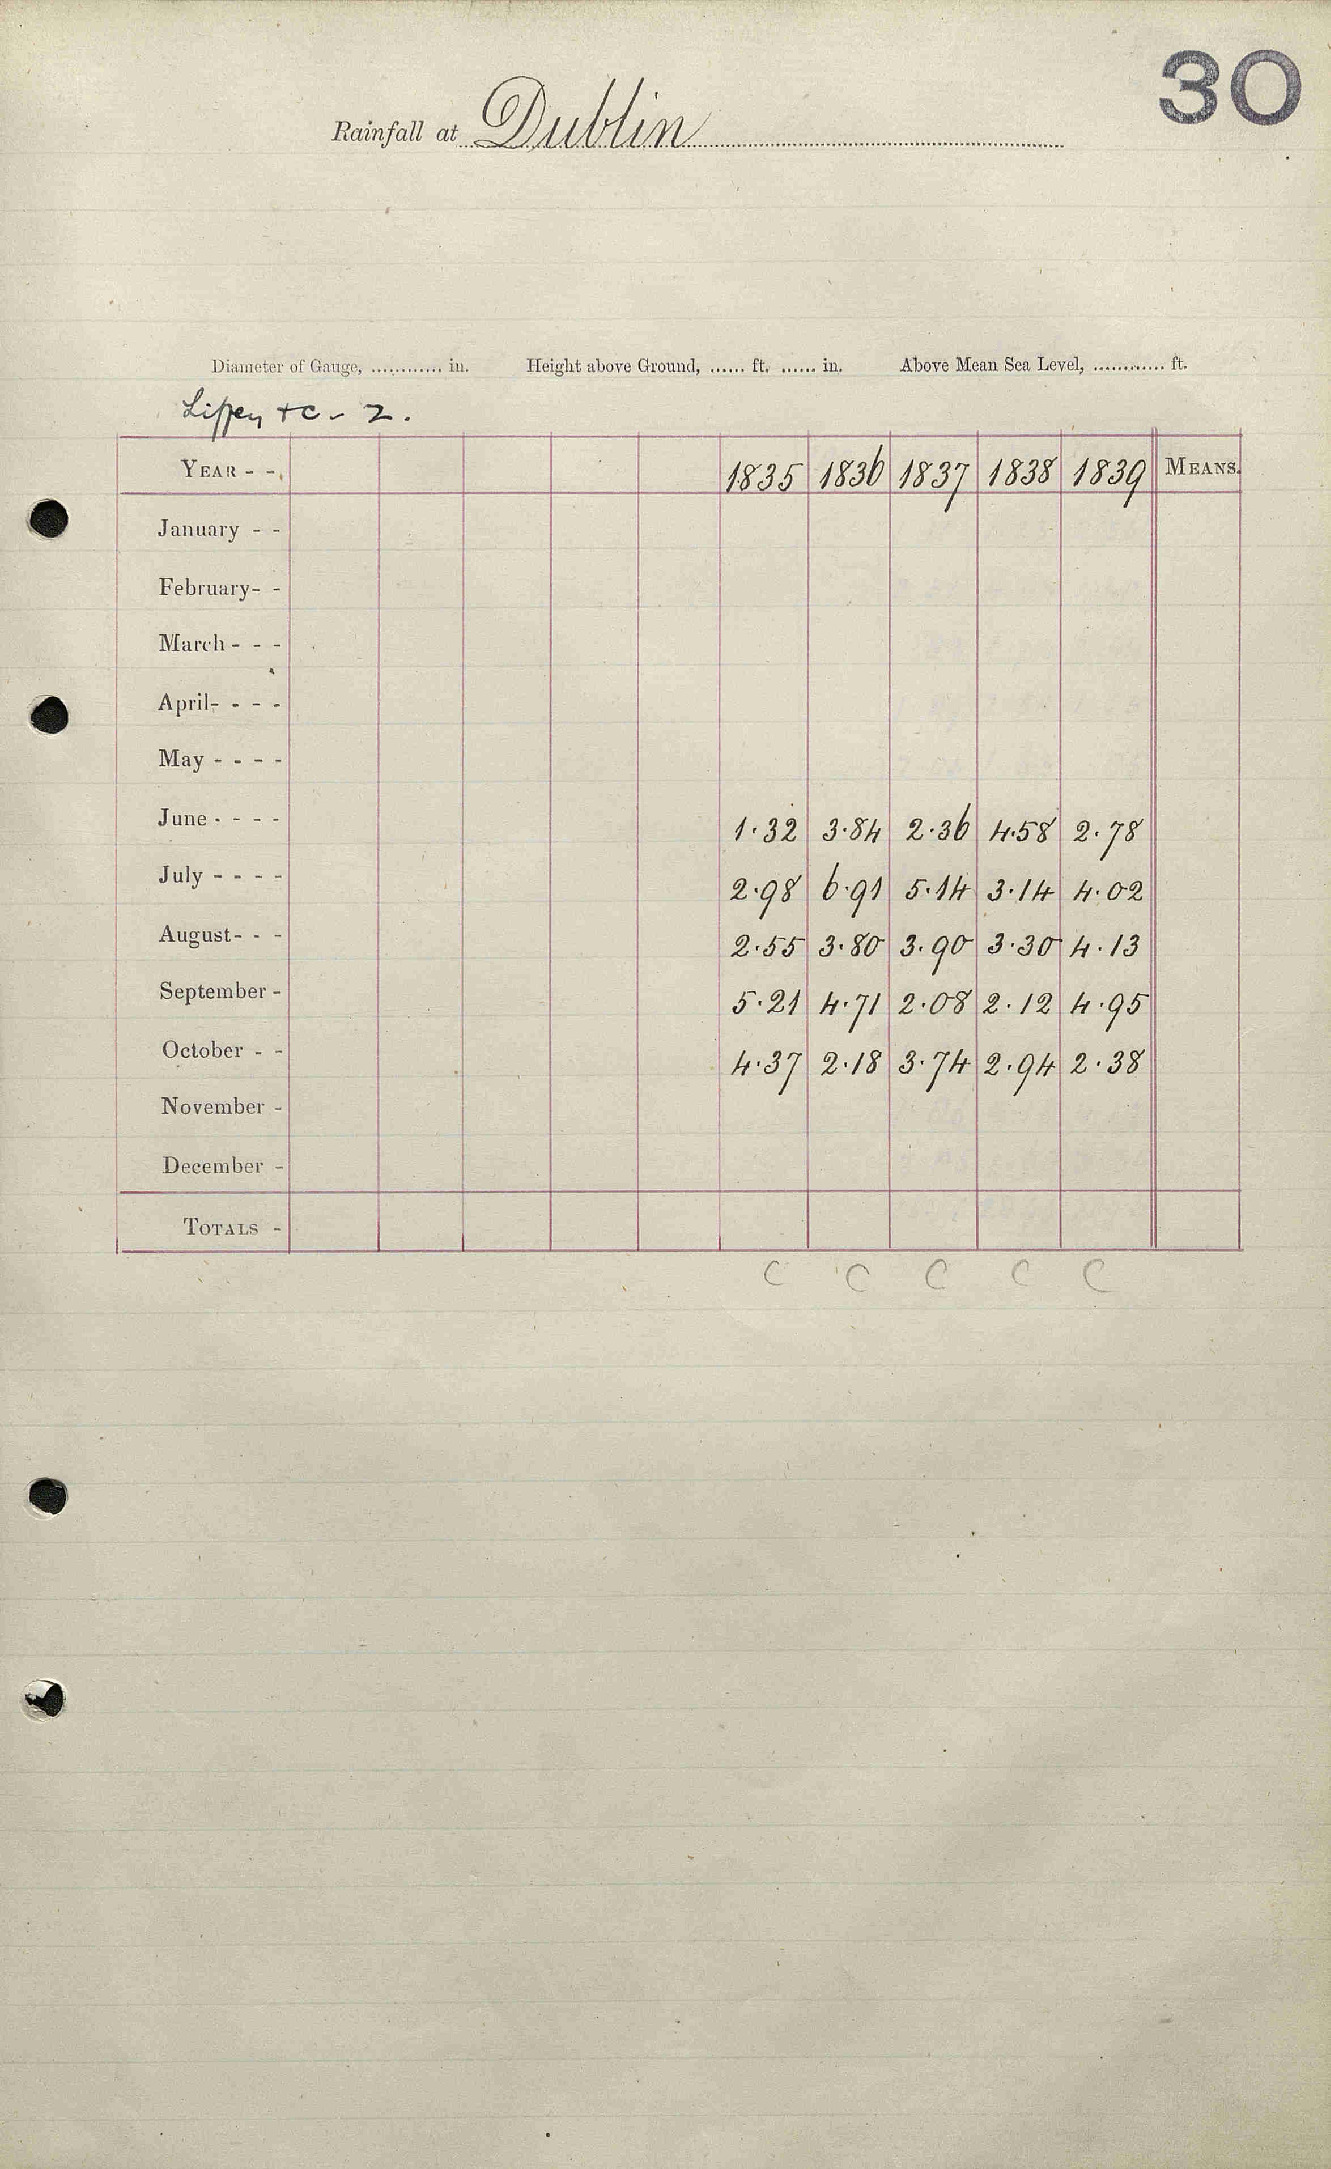 30
Rainfall at Dublin
Diameter of Gauge, ............ in. Height above Ground, ...... ft. ...... in. Above Mean Sea Level, ............ ft.
Liffey + C - 2.
YEAR - - 1835 1836 1837 1838 1839 MEANS.
January - -
February - -
March - - -
April - - - -
May - - - -
June - - - - 1.32 3.84 2.36 4.58 2.78
July - - - - 2.98 6.91 5.14 3.14 4.02
August - - - 2.55 3.80 3.90 3.30 4.13
September - 5.21 4.71 2.08 2.12 4.95
October - - 4.37 2.18 3.74 2.94 2.38
November -
December -
TOTALS -
C C C C C